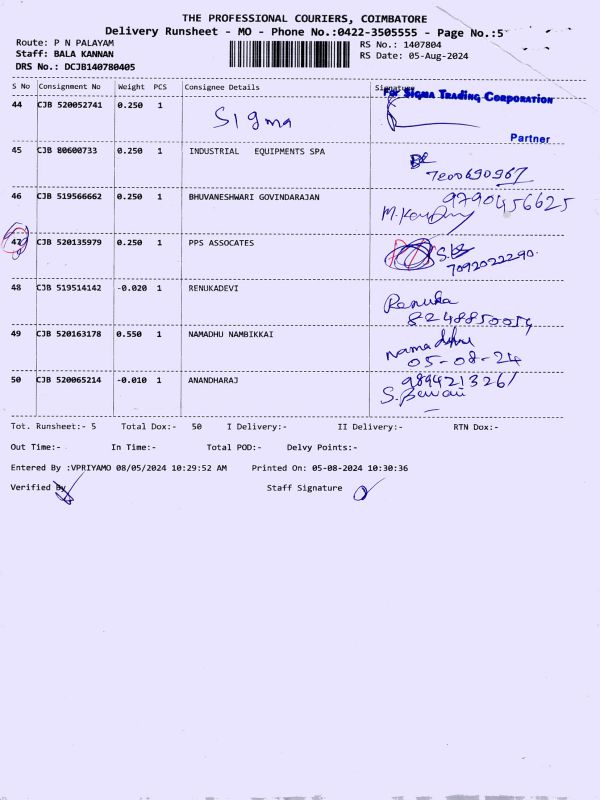 THE PROFESSIONAL COURIERS, COIMBATORE
Delivery Runsheet - MO - Phone No.:0422-3505555 - Page No.:5
Route: P N PALAYAM
Staff: BALA KANNAN
DRS No.: DCJB140780405
RS No.: 1407804
RS Date: 05-Aug-2024
S No Consignment No Weight PCS Consignee Details Signature
For SIGMA TRADING CORPORATION
44 CJB 520052741 0.250 1 Sigma
Partner
45 CJB 80600733 0.250 1 INDUSTRIAL EQUIPMENTS SPA
7200690967
46 CJB 519566662 0.250 1 BHUVANESHWARI GOVINDARAJAN 9790456625
47 CJB 520135979 0.250 1 PPS ASSOCATES
7092022290.
48 CJB 519514142 -0.020 1 RENUKADEVI Renuka
8248850054
49 CJB 520163178 0.550 1 NAMADHU NAMBIKKAI Namadhu
05-08-24
50 CJB 520065214 -0.010 1 ANANDHARAJ 9894213261
Tot. Runsheet:- 5 Total Dox:- 50 I Delivery:- II Delivery:- RTN Dox:-
Out Time:- In Time:- Total POD:- Delvy Points:-
Entered By :VPRIYAMO 08/05/2024 10:29:52 AM Printed On: 05-08-2024 10:30:36
Verified By Staff Signature